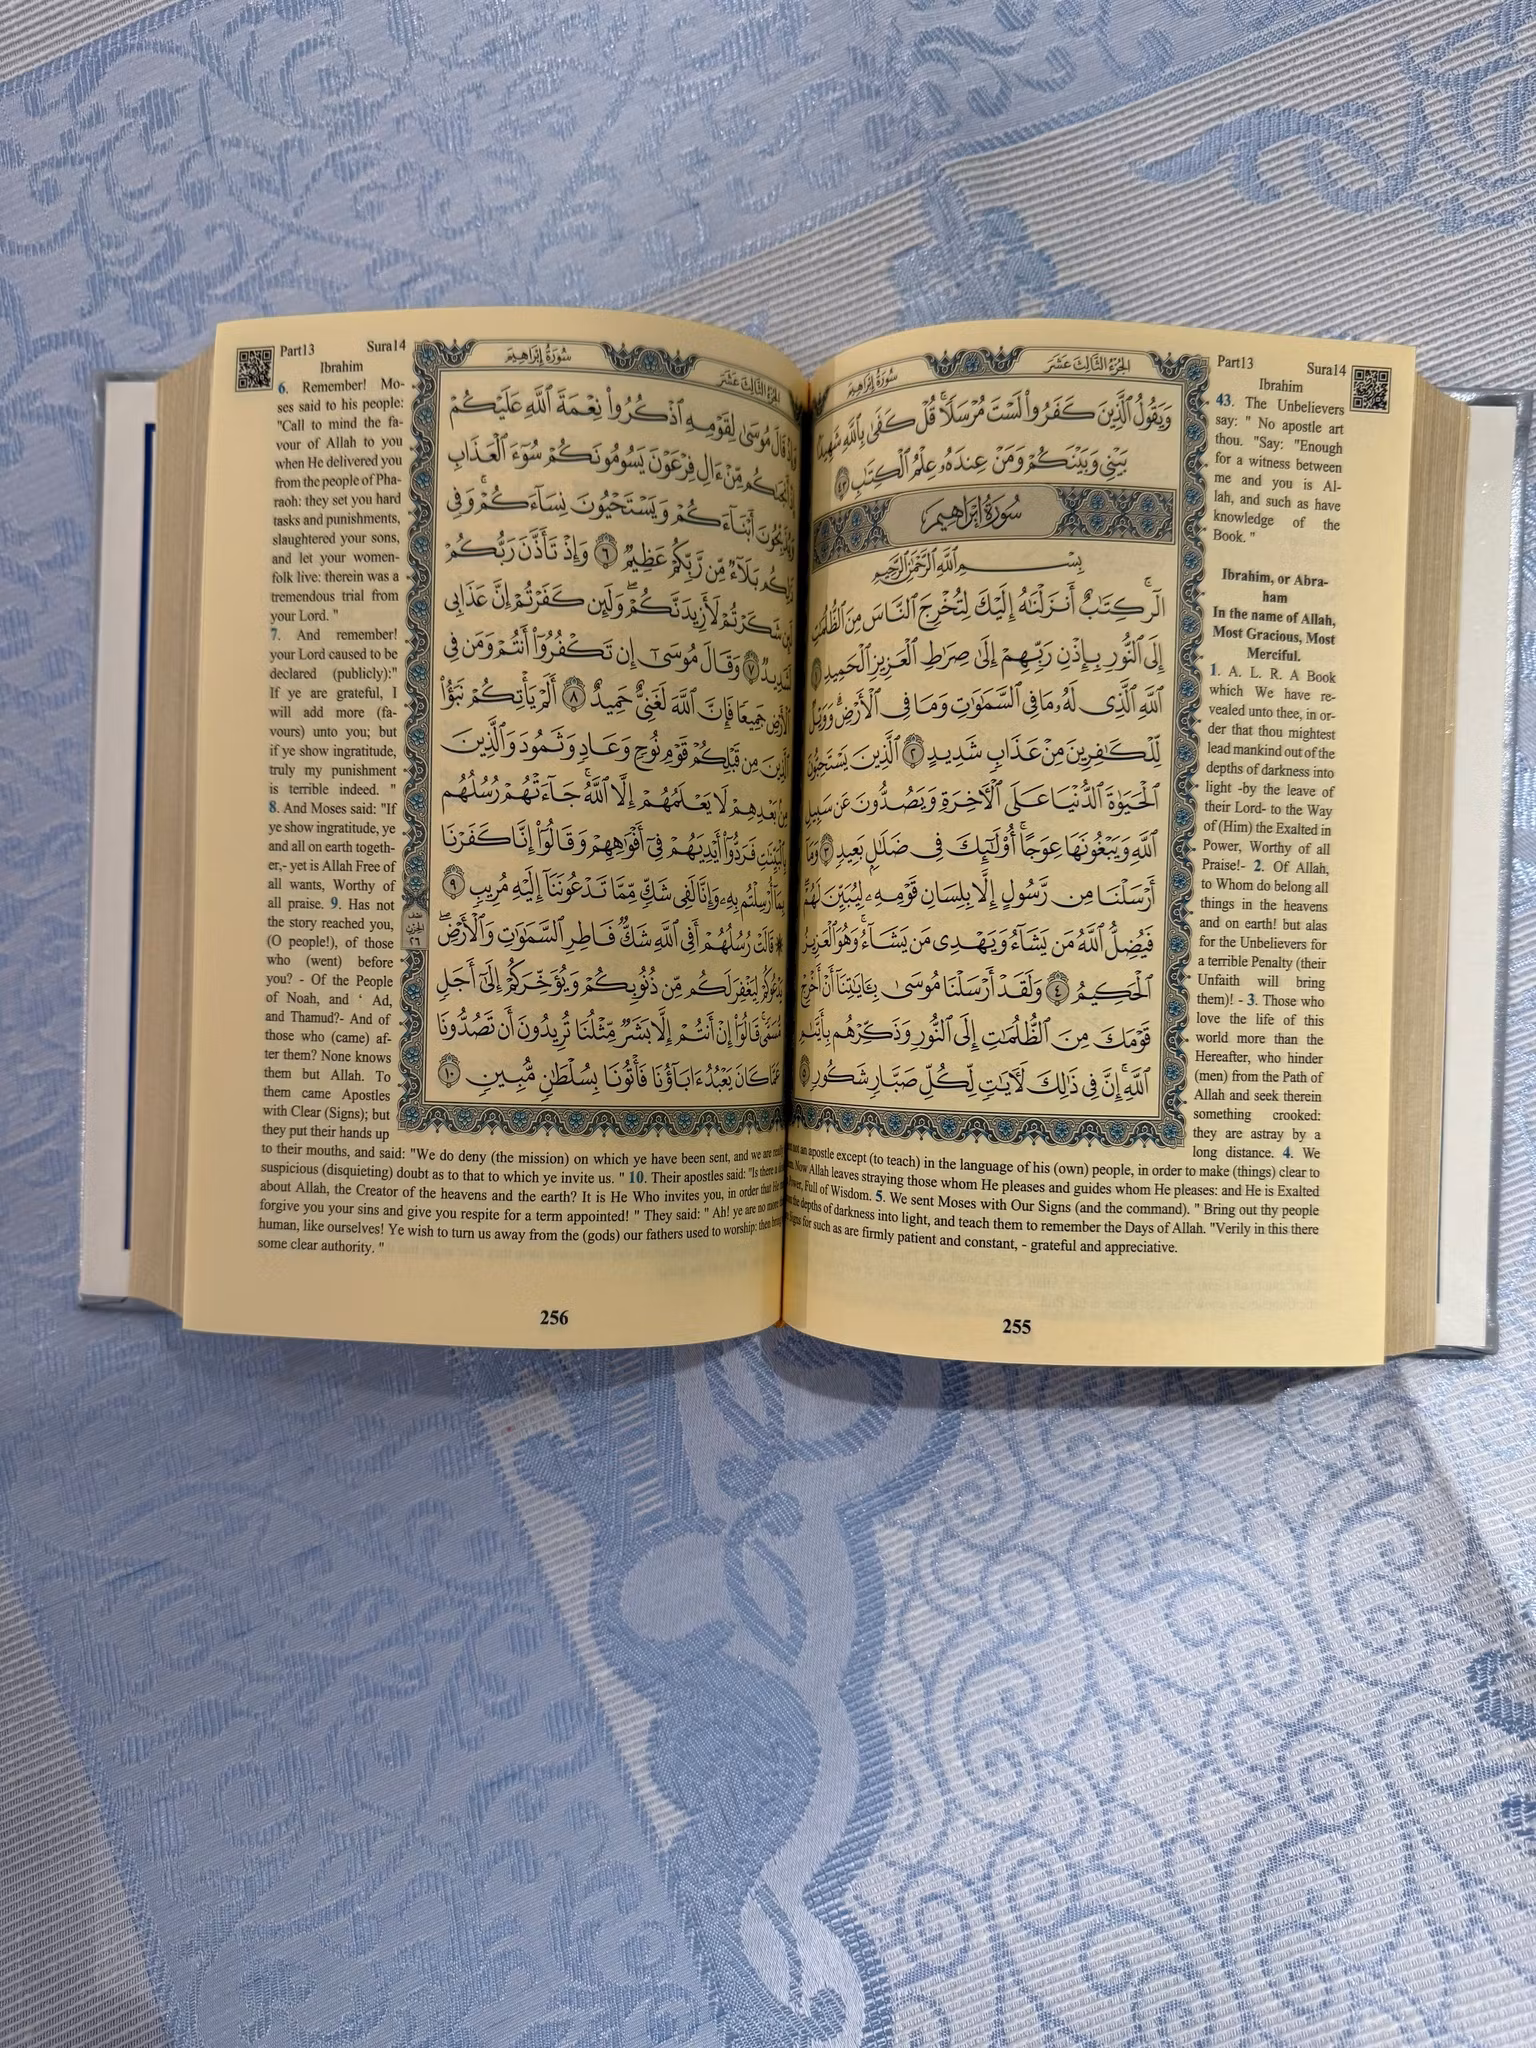 Part13 Sura14
Ibrahim
الجزء الثالث عشر
سورة إبراهيم
وَيَقُولُ الَّذِينَ كَفَرُوا۟ لَسْتَ مُرْسَلًا ۚ قُلْ كَفَىٰ بِاللَّهِ شَهِيدًۢا
بَيْنِى وَبَيْنَكُمْ وَمَنْ عِندَهُۥ عِلْمُ الْكِتَٰبِ ٤٣
سُورَةُ إِبْرَاهِيمَ
بِسْمِ اللَّهِ الرَّحْمَٰنِ الرَّحِيمِ
الٓر ۚ كِتَٰبٌ أَنزَلْنَٰهُ إِلَيْكَ لِتُخْرِجَ النَّاسَ مِنَ الظُّلُمَٰتِ
إِلَى النُّورِ بِإِذْنِ رَبِّهِمْ إِلَىٰ صِرَٰطِ الْعَزِيزِ الْحَمِيدِ ١
اللَّهِ الَّذِى لَهُۥ مَا فِى السَّمَٰوَٰتِ وَمَا فِى الْأَرْضِ ۗ وَوَيْلٌ
لِّلْكَٰفِرِينَ مِنْ عَذَابٍ شَدِيدٍ ٢ الَّذِينَ يَسْتَحِبُّونَ
الْحَيَوٰةَ الدُّنْيَا عَلَى الْءَاخِرَةِ وَيَصُدُّونَ عَن سَبِيلِ
اللَّهِ وَيَبْغُونَهَا عِوَجًا ۚ أُو۟لَٰٓئِكَ فِى ضَلَٰلٍۭ بَعِيدٍ ٣ وَمَآ
أَرْسَلْنَا مِن رَّسُولٍ إِلَّا بِلِسَانِ قَوْمِهِۦ لِيُبَيِّنَ لَهُمْ ۖ
فَيُضِلُّ اللَّهُ مَن يَشَآءُ وَيَهْدِى مَن يَشَآءُ ۚ وَهُوَ الْعَزِيزُ
الْحَكِيمُ ٤ وَلَقَدْ أَرْسَلْنَا مُوسَىٰ بِـَٔايَٰتِنَآ أَنْ أَخْرِجْ
قَوْمَكَ مِنَ الظُّلُمَٰتِ إِلَى النُّورِ وَذَكِّرْهُم بِأَيَّىٰمِ
اللَّهِ ۚ إِنَّ فِى ذَٰلِكَ لَءَايَٰتٍ لِّكُلِّ صَبَّارٍ شَكُورٍ ٥
43. The Unbelievers
say: " No apostle art
thou. "Say: "Enough
for a witness between
me and you is Al-
lah, and such as have
knowledge of the
Book. "
Ibrahim, or Abra-
ham
In the name of Allah,
Most Gracious, Most
Merciful.
1. A. L. R. A Book
which We have re-
vealed unto thee, in or-
der that thou mightest
lead mankind out of the
depths of darkness into
light -by the leave of
their Lord- to the Way
of (Him) the Exalted in
Power, Worthy of all
Praise!- 2. Of Allah,
to Whom do belong all
things in the heavens
and on earth! but alas
for the Unbelievers for
a terrible Penalty (their
Unfaith will bring
them)! - 3. Those who
love the life of this
world more than the
Hereafter, who hinder
(men) from the Path of
Allah and seek therein
something crooked:
they are astray by a
long distance. 4. We
not an apostle except (to teach) in the language of his (own) people, in order to make (things) clear to
Now Allah leaves straying those whom He pleases and guides whom He pleases: and He is Exalted
Full of Wisdom. 5. We sent Moses with Our Signs (and the command). " Bring out thy people
the depths of darkness into light, and teach them to remember the Days of Allah. "Verily in this there
Signs for such as are firmly patient and constant, - grateful and appreciative.
255
Part13 Sura14
Ibrahim
الجزء الثالث عشر
سورة إبراهيم
قَالَ مُوسَىٰ لِقَوْمِهِ اذْكُرُوا۟ نِعْمَةَ اللَّهِ عَلَيْكُمْ
أَنجَىٰكُم مِّنْ ءَالِ فِرْعَوْنَ يَسُومُونَكُمْ سُوٓءَ الْعَذَابِ
وَيُذَبِّحُونَ أَبْنَآءَكُمْ وَيَسْتَحْيُونَ نِسَآءَكُمْ ۚ وَفِى
ذَٰلِكُم بَلَآءٌ مِّن رَّبِّكُمْ عَظِيمٌ ٦ وَإِذْ تَأَذَّنَ رَبُّكُمْ
لَئِن شَكَرْتُمْ لَأَزِيدَنَّكُمْ ۖ وَلَئِن كَفَرْتُمْ إِنَّ عَذَابِى
لَشَدِيدٌ ٧ وَقَالَ مُوسَىٰٓ إِن تَكْفُرُوٓا۟ أَنتُمْ وَمَن فِى
الْأَرْضِ جَمِيعًا فَإِنَّ اللَّهَ لَغَنِىٌّ حَمِيدٌ ٨ أَلَمْ يَأْتِكُمْ نَبَؤُا۟
الَّذِينَ مِن قَبْلِكُمْ قَوْمِ نُوحٍ وَعَادٍ وَثَمُودَ ۛ وَالَّذِينَ
مِنۢ بَعْدِهِمْ ۛ لَا يَعْلَمُهُمْ إِلَّا اللَّهُ ۚ جَآءَتْهُمْ رُسُلُهُم
بِالْبَيِّنَٰتِ فَرَدُّوٓا۟ أَيْدِيَهُمْ فِىٓ أَفْوَٰهِهِمْ وَقَالُوٓا۟ إِنَّا كَفَرْنَا
بِمَآ أُرْسِلْتُم بِهِۦ وَإِنَّا لَفِى شَكٍّ مِّمَّا تَدْعُونَنَآ إِلَيْهِ مُرِيبٍ ٩
۞ قَالَتْ رُسُلُهُمْ أَفِى اللَّهِ شَكٌّ فَاطِرِ السَّمَٰوَٰتِ وَالْأَرْضِ ۖ
يَدْعُوكُمْ لِيَغْفِرَ لَكُم مِّن ذُنُوبِكُمْ وَيُؤَخِّرَكُمْ إِلَىٰٓ أَجَلٍ
مُّسَمًّى ۚ قَالُوٓا۟ إِنْ أَنتُمْ إِلَّا بَشَرٌ مِّثْلُنَا تُرِيدُونَ أَن تَصُدُّونَا
عَمَّا كَانَ يَعْبُدُ ءَابَآؤُنَا فَأْتُونَا بِسُلْطَٰنٍ مُّبِينٍ ١٠
نصف
الحزب
٢٦
6. Remember! Mo-
ses said to his people:
"Call to mind the fa-
vour of Allah to you
when He delivered you
from the people of Pha-
raoh: they set you hard
tasks and punishments,
slaughtered your sons,
and let your women-
folk live: therein was a
tremendous trial from
your Lord. "
7. And remember!
your Lord caused to be
declared (publicly):"
If ye are grateful, I
will add more (fa-
vours) unto you; but
if ye show ingratitude,
truly my punishment
is terrible indeed. "
8. And Moses said: "If
ye show ingratitude, ye
and all on earth togeth-
er,- yet is Allah Free of
all wants, Worthy of
all praise. 9. Has not
the story reached you,
(O people!), of those
who (went) before
you? - Of the People
of Noah, and ‘ Ad,
and Thamud?- And of
those who (came) af-
ter them? None knows
them but Allah. To
them came Apostles
with Clear (Signs); but
they put their hands up
to their mouths, and said: "We do deny (the mission) on which ye have been sent, and we are
suspicious (disquieting) doubt as to that to which ye invite us. " 10. Their apostles said: "Is there a
about Allah, the Creator of the heavens and the earth? It is He Who invites you, in order that He
forgive you your sins and give you respite for a term appointed! " They said: " Ah! ye are no more
human, like ourselves! Ye wish to turn us away from the (gods) our fathers used to worship: then
some clear authority. "
256